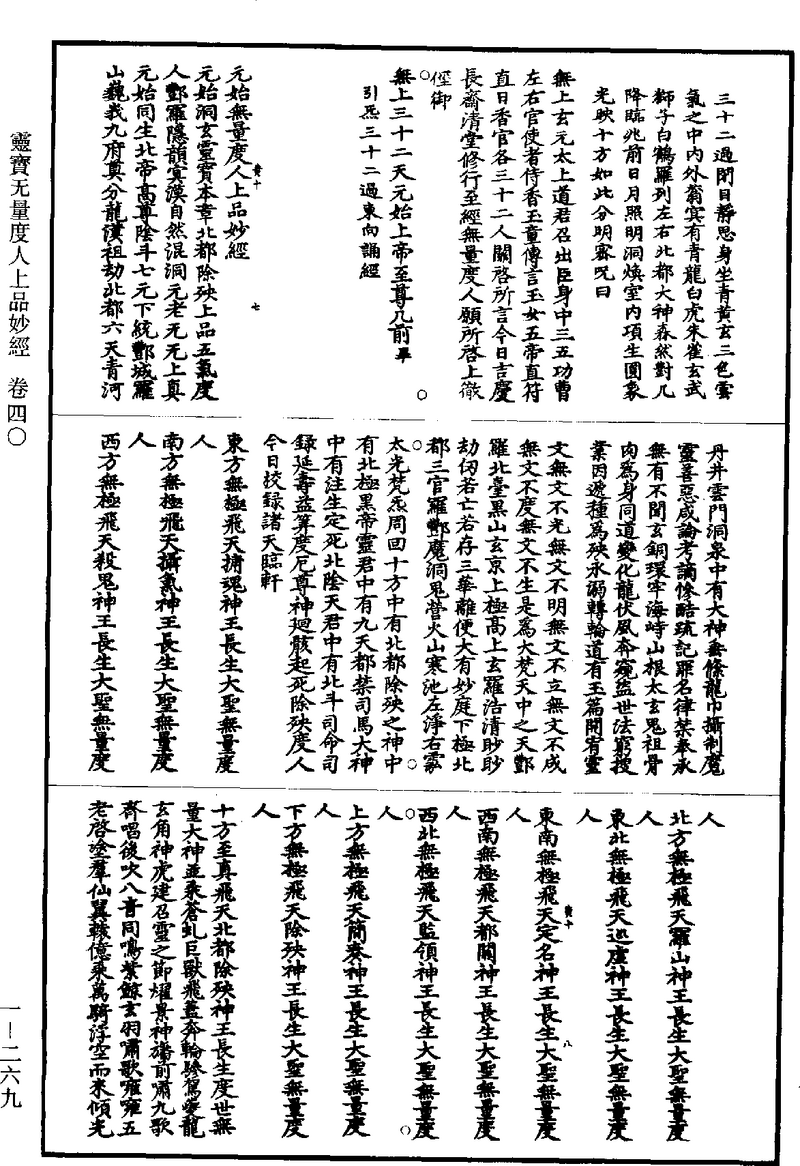 三十二過閉目靜思身坐青黃玄三色雲
氣之中內外蓊冥有青龍白虎朱雀玄武
獅子白鶴羅列左右北都大神森然對几
降臨兆前日月照明洞煥室內項生圓象
光映十方如此分明密咒曰
無上玄元太上道君召出臣身中三五功曹
左右官使者侍香玉童傳言玉女五帝直符
直日香官各三十二人關啓所言今日吉慶
長齋清堂修行至經無量度人願所啓上徹
徑御
無上三十二天元始上帝至尊几前畢
引炁三十二過東向誦經
元始無量度人上品妙經
元始洞玄靈寶本章北都除殃上品五氣度
人酆羅隱韻寞漠自然混洞元老无无上真
元始同生北帝高尊陰斗七元下統酆城羅
山巍峩九府奠分龍漢祖劫北都六天青河
黃十
七
丹井雲門洞泉中有大神垂絛龍巾攝制魔
靈善惡咸論考謫慘酷疏記罪名律禁奉承
無有不聞玄銅環牢海峙山根太玄鬼祖骨
肉爲身同道變化龍伏風奔窺盜世法窮搜
業因遞種爲殃永溺轉輪道有玉篇開宥靈
文無文不光無文不明無文不立無文不成
無文不度無文不生是爲大梵天中之天酆
羅北臺黑山玄京上極高上玄羅浩清眇眇
劫仞若亡若存三華離便大有妙庭下極北
都三官羅酆魔洞鬼營火山寒池左淨右察
太光梵炁周回十方中有北都除殃之神中
有北極黑帝靈君中有九天都禁司馬大神
中有注生定死北陰天君中有北斗司命司
錄延壽益算度厄尊神迴骸起死除殃度人
今日校錄諸天臨軒
東方無極飛天捕魂神王長生大聖無量度
人
南方無極飛天攝氣神王長生大聖無量度
人
西方無極飛天殺鬼神王長生大聖無量度
人
北方無極飛天羅山神王長生大聖無量度
人
東北無極飛天巡虛神王長生大聖無量度
人
東南無極飛天定名神王長生大聖無量度
人
黃十
八
西南無極飛天都關神王長生大聖無量度
人
西北無極飛天監領神王長生大聖無量度
人
上方無極飛天簡賚神王長生大聖無量度
人
下方無極飛天除殃神王長生大聖無量度
人
十方至真飛天北都除殃神王長生度世無
量大神並乘蒼虬巨獸飛蓋奔輪驂駕夔龍
玄角神虎建召靈之節燿景神旛前嘯九歌
齊唱後吹八音同鳴紫鯨玄羽嘯歌嗈嗈五
老啓塗羣仙翼轅億乘萬騎浮空而來傾光
靈寶无量度人上品妙經 卷四〇
一—二六九